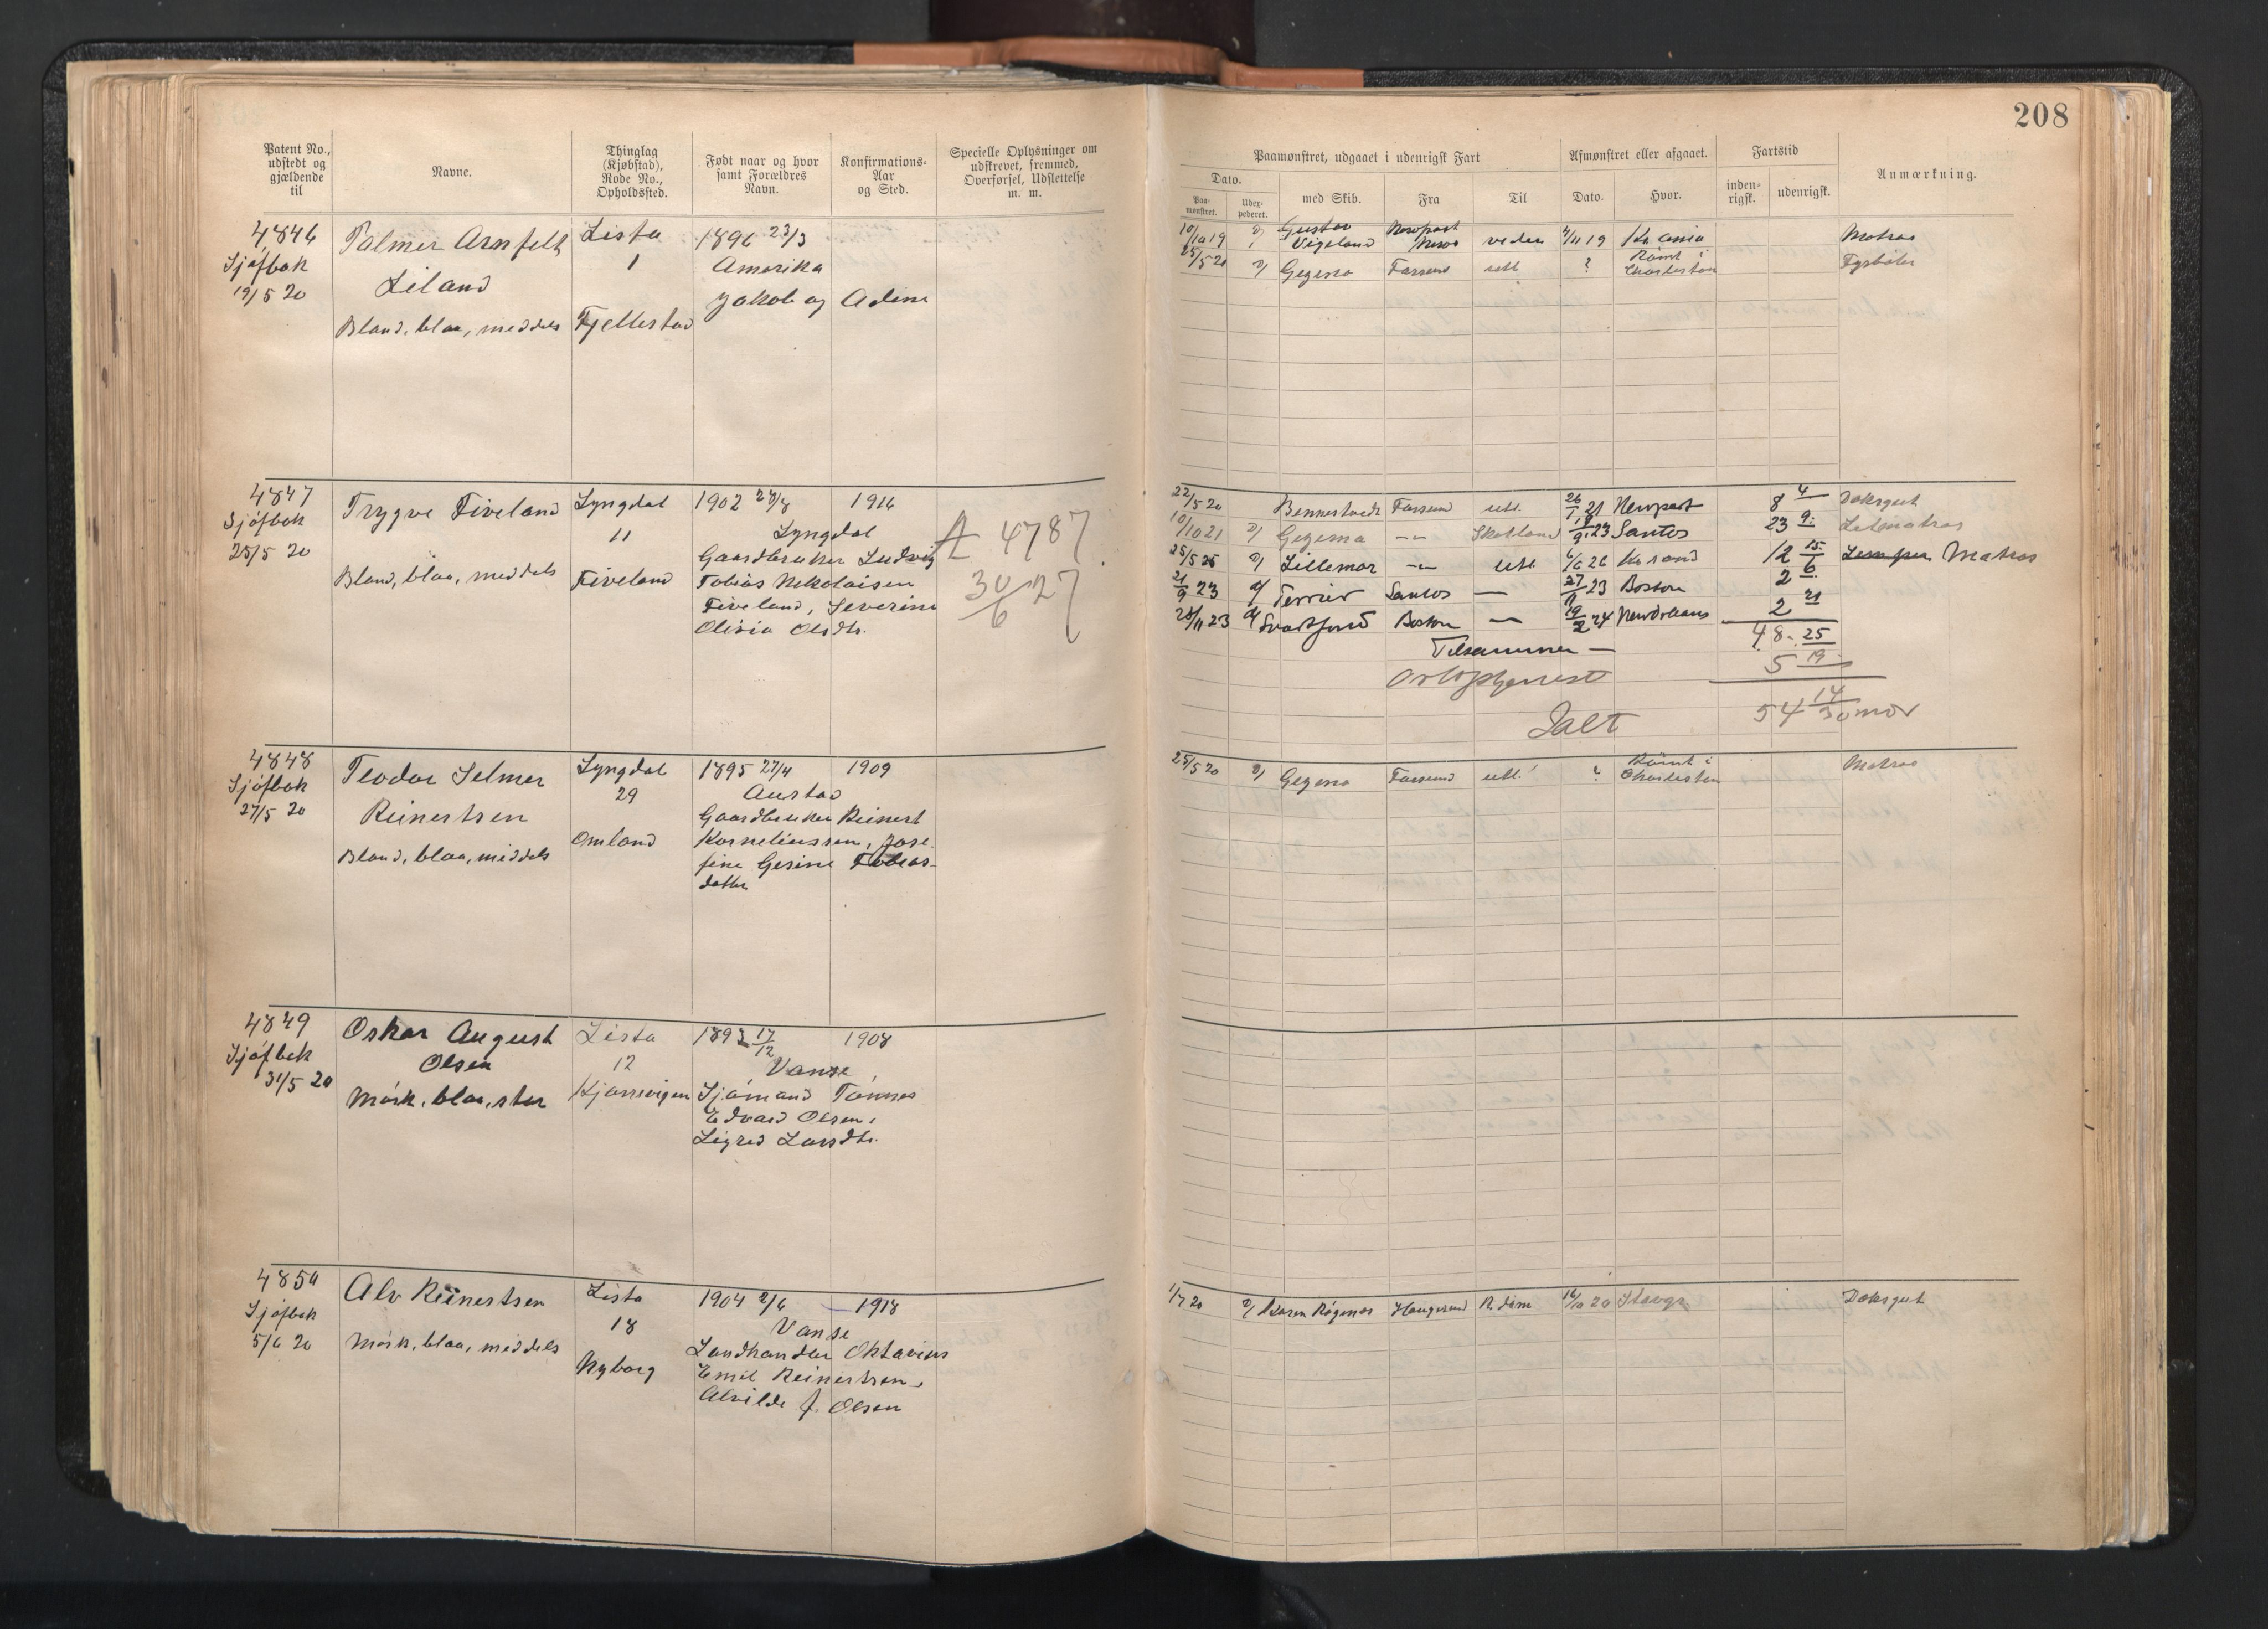 208
Patent No., udstedt og gjældende til
Navne.
Thinglag (Kjøbstad), Rode No., Opholdssted.
Født naar og hvor samt Forældres Navn.
Konfirmations-Aar og Sted.
Specielle Oplysninger om udskrevet, fremmed, Overførsel, Udslettelse m. m.
Paamønstret, udgaaet i udenrigsk Fart
Afmønstret eller afgaaet.
Fartstid
Anmærkning.
Dato.
Paa-mønstret.
Udex-pederet.
med Skib.
Fra
Til
Dato.
Hvor.
inden-rigsk.
udenrigsk.
4846
Sjøfbok
19/5 20
Palmer Arnfelt
Liland
Blond, blaa, meddels
Lista
1
Fjellestad
1896 23/3
Amerika
Jakob og Adine
10/10 19 Gustav Vigeland Newport News veden 4/11 19 Kr.ania Matros
25/5 20 Gezena Farsund utl. ? Rømt i Charleston Fyrbøter
4847
Sjøfbok
25/5 20
Trygve Fiveland
Blond, blaa, meddels
Lyngdal
11
Fiveland
1902 28/8 1916
Lyngdal
Gaardbruker Ludvig
Tobias Nikolaisen
Fiveland, Severine
Olivia Olsdtr.
A 4787
30/6 27
22/5 20 Bennestvedt Farsund utl. 26/1 21 Newport 8 4 Doksgut
10/10 21 Gezena -"- Skotland 9/9 23 Santos 23 9 Letmatros
25/5 25 Lillemor -"- utl. 6/6 26 Kr.sand 12 15 Matros
21/9 23 Terrier Santos — 27/11 23 Boston 2 6
28/11 23 Svartfond Boston — 19/2 24 New Orleans 2 21
Tilsammen — 48 25
5 19
Ialt 54 14/30 mdr
4848
Sjøfbok
27/5 20
Teodor Selmer
Reinertsen
Blond, blaa, middels
Lyngdal
29
Omland
1895 27/4 1909
Austad
Gaardbruker Reinert
Korneliussen, Jose-
fine Gesine Tobias-
datter
25/5 20 Gezena Farsund utl. ? Rømt i Charleston Matros
4849
Sjøfbok
31/5 20
Oskar August
Olsen
Mørk, blaa, stor
Lista
12
Kjørrevigen
1893 17/12 1908
Vanse
Sjømand Tønnes
Edvard Olsen,
Sigred Larsdtr.
4850
Sjøfbok
5/6 20
Alv Reinertsen
Mørk, blaa, middels
Lista
18
Nyborg
1904 2/6 — 1918
Vanse
Landhandler Oktavius
Emil Reinertsen,
Alvilde f. Olsen
1/7 20 Karen Rögenes Haugesund R.dam 16/10 20 Stavgr Doksgut